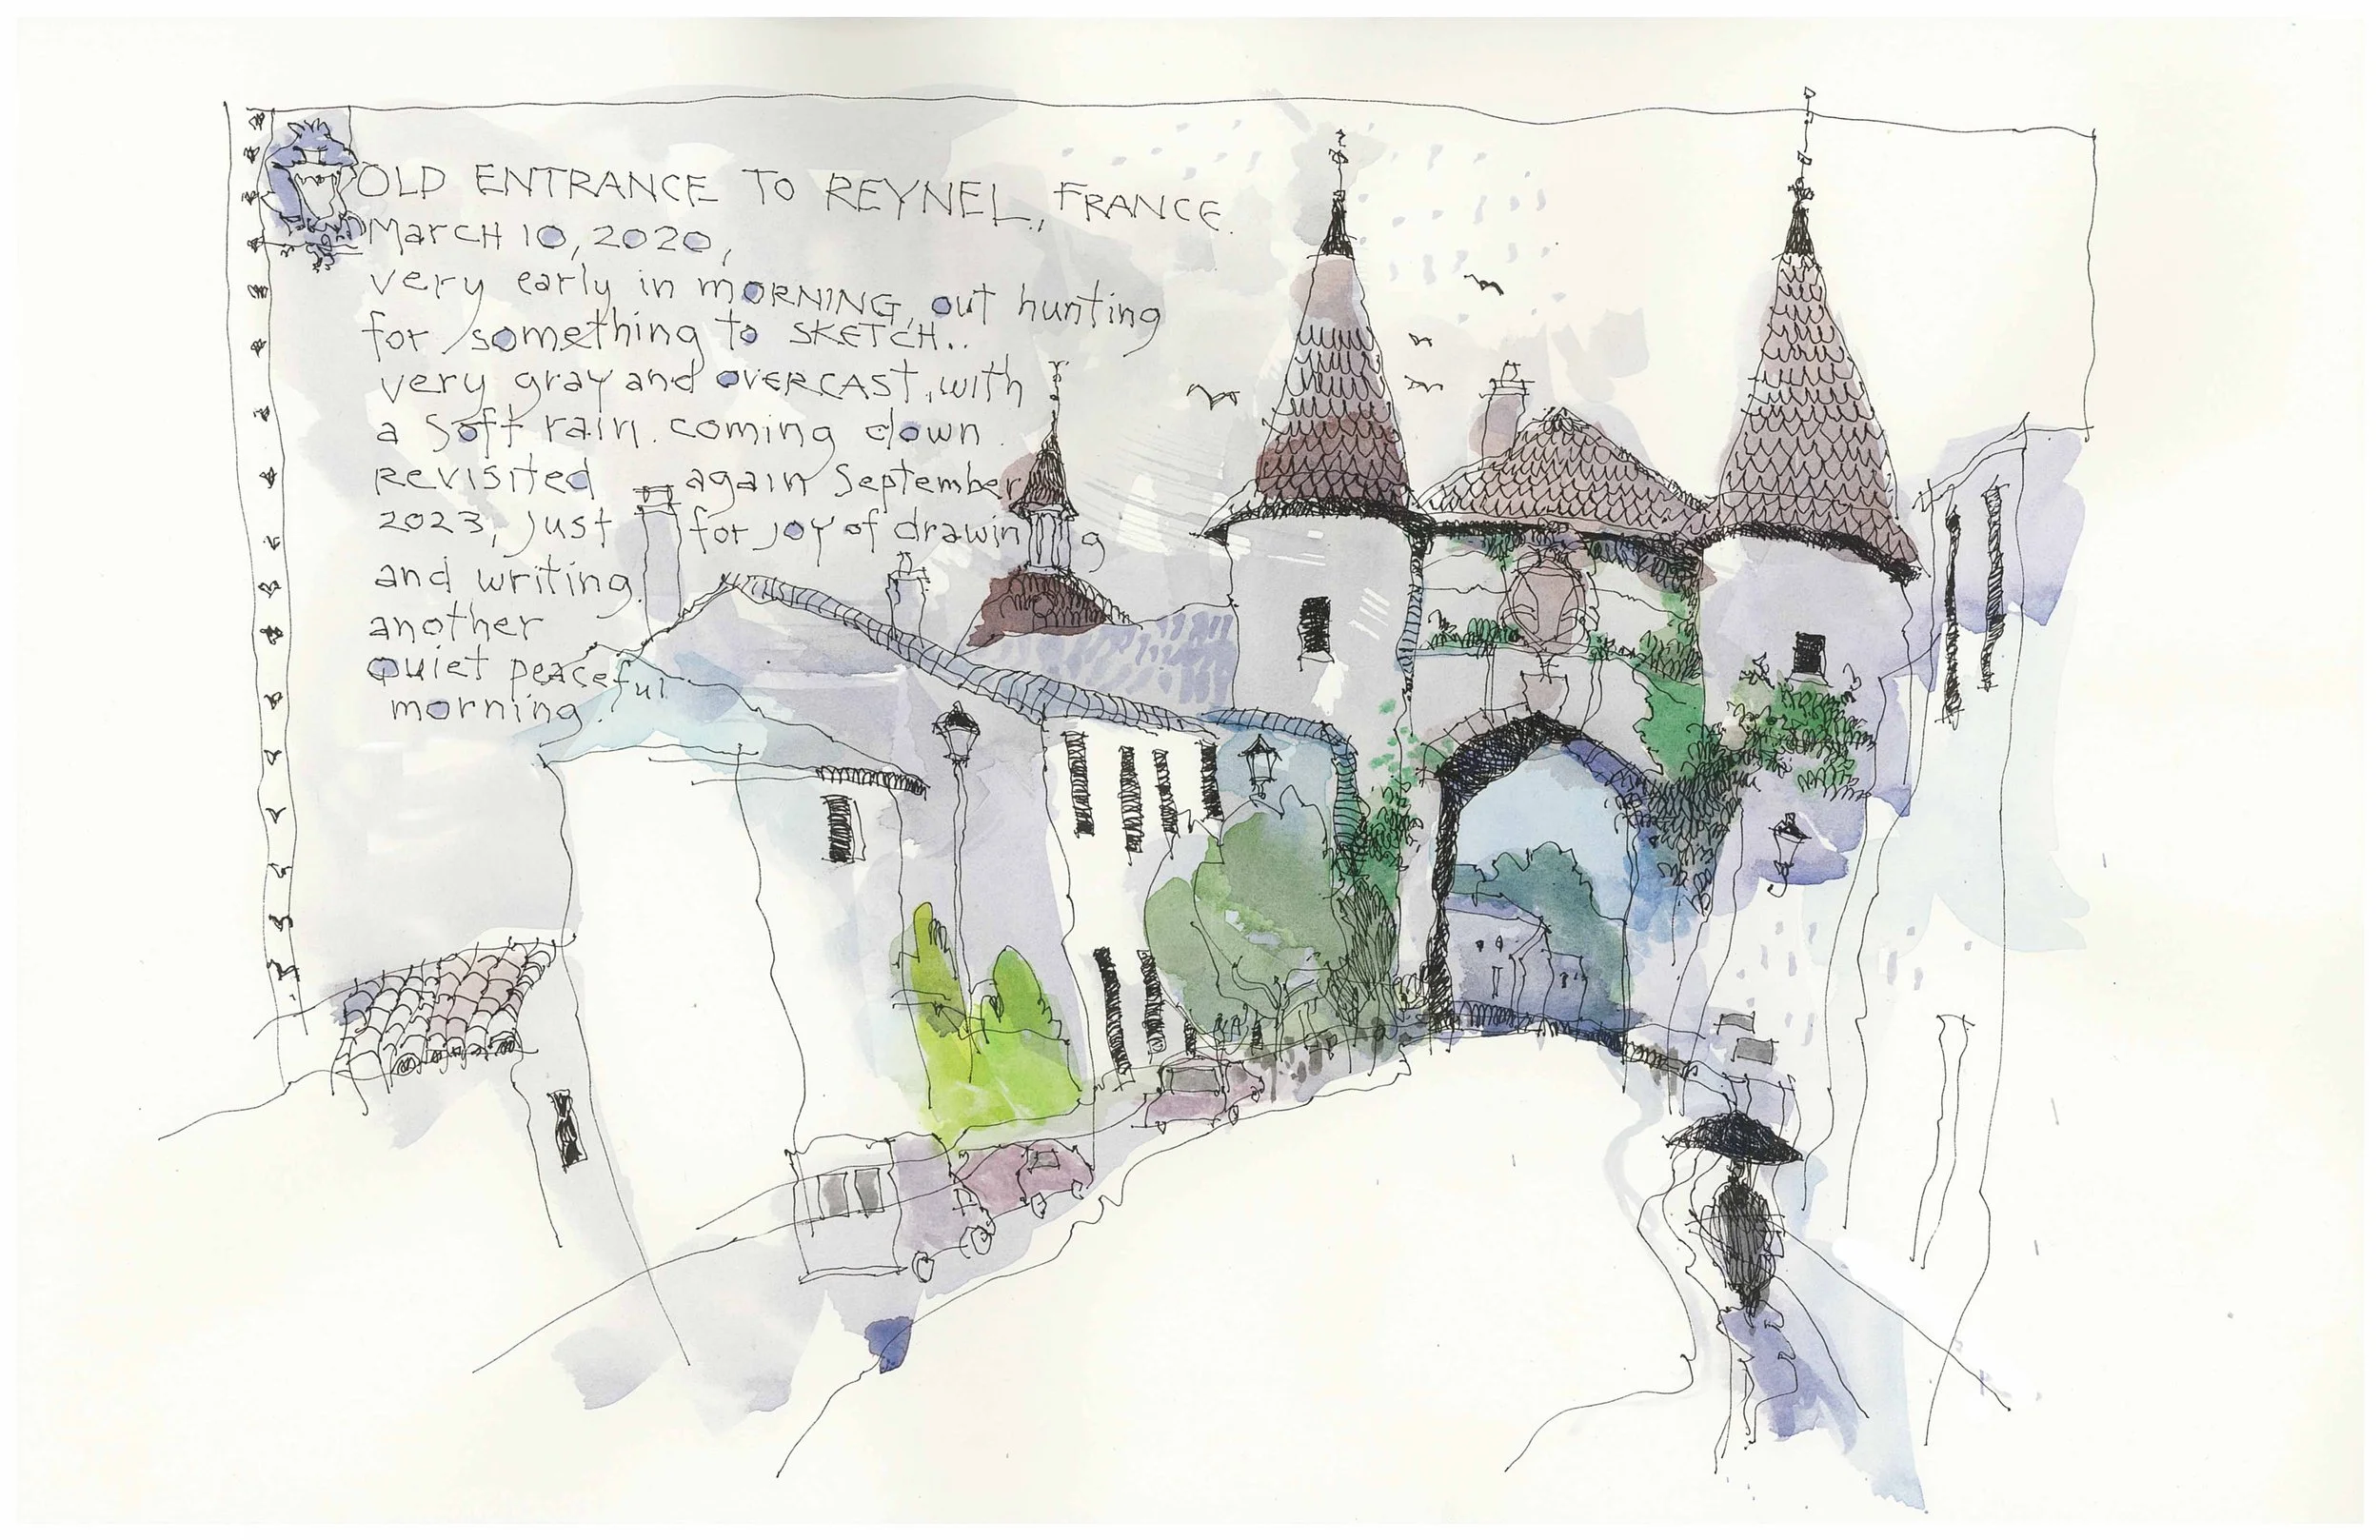 OLD ENTRANCE TO REYNEL, FRANCE.
March 10, 2020,
very early in mORNING, out hunting
for something to SKETCH..
very gray and OVERCAST, with
a soft rain. coming down.
revisited again September
2023, just for joy of drawing
and writing.
another
quiet peaceful
morning.